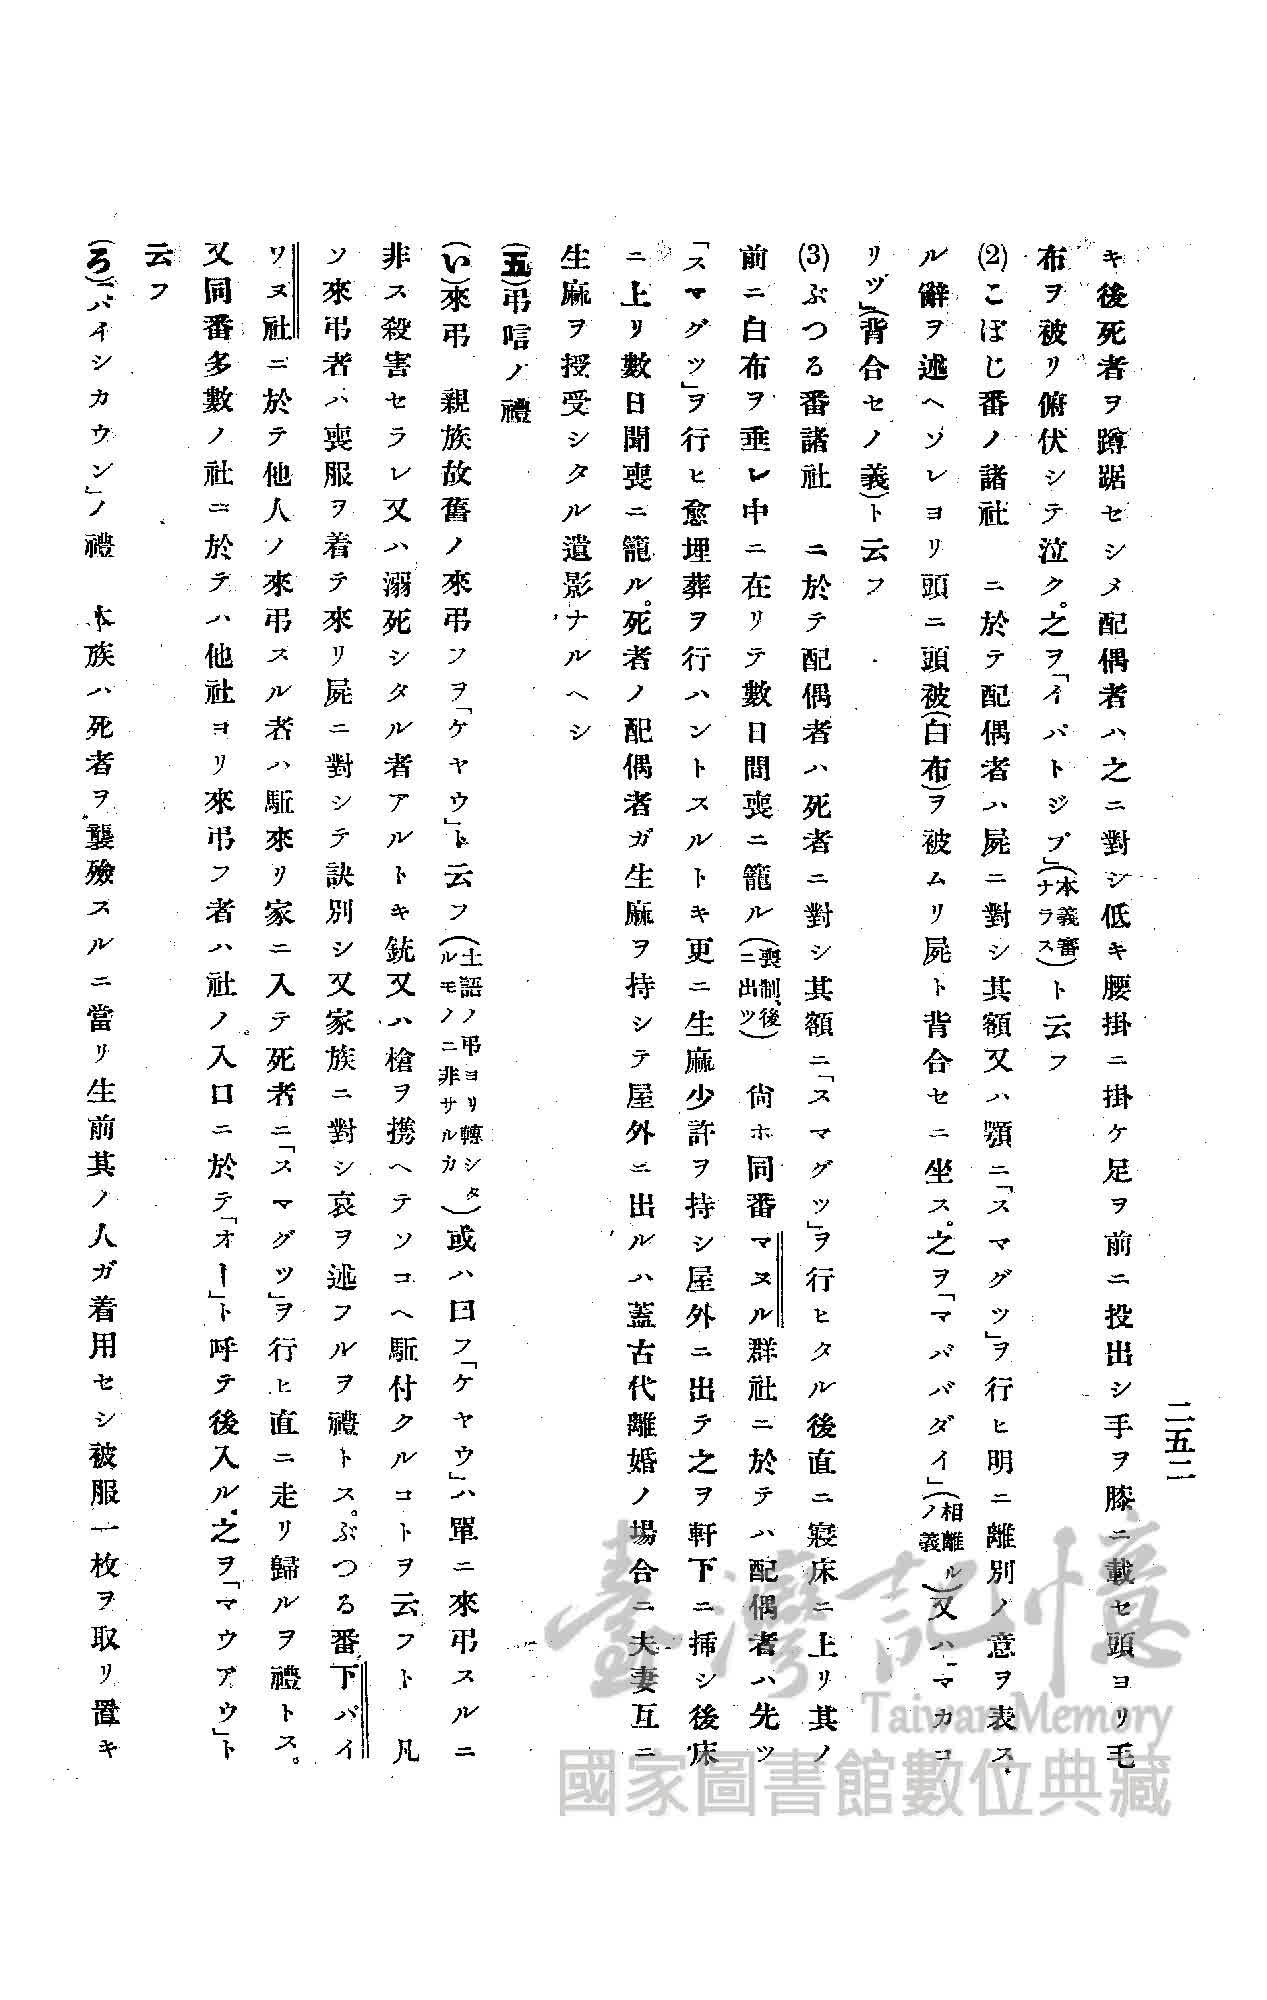 二五二
キ後死者ヲ蹲踞セシメ配偶者ハ之ニ對シ低キ腰掛ニ掛ケ足ヲ前ニ投出シ手ヲ膝ニ載セ頭ヨリ毛
布ヲ被リ俯伏シテ泣ク。之ヲ「イバトジブ」(本義審ナラス)ト云フ
(2)こぼじ番ノ諸社　ニ於テ配偶者ハ屍ニ對シ其額又ハ顎ニ「スマグツ」ヲ行ヒ明ニ離別ノ意ヲ表ス、
ル辭ヲ述ヘソレヨリ頭ニ頭被(白布)ヲ被ムリ屍ト背合セニ坐ス。之ヲ「マババダイ」(相離ルノ義)又ハ「マカコ
リヅ」(背合セノ義)ト云フ
(3)ぶつる番諸社　ニ於テ配偶者ハ死者ニ對シ其額ニ「スマグツ」ヲ行ヒタル後直ニ寢床ニ上リ其ノ
前ニ白布ヲ垂レ中ニ在リテ數日間喪ニ籠ル(喪制、後ニ出ツ)　尙ホ同番マヌル群社ニ於テハ配偶者ハ先ツ
「スマグツ」ヲ行ヒ愈埋葬ヲ行ハントスルトキ更ニ生麻少許ヲ持シ屋外ニ出テ之ヲ軒下ニ揷シ後床
ニ上リ數日間喪ニ籠ル。死者ノ配偶者ガ生麻ヲ持シテ屋外ニ出ルハ蓋古代離婚ノ場合ニ夫妻互ニ
生麻ヲ授受シタル遺影ナルヘシ
(五)弔唁ノ禮
(い)來弔　親族故舊ノ來弔フヲ「ケヤウ」ト云フ(土語ノ弔ヨリ轉シタルモノニ非サルカ)或ハ曰フ「ケヤウ」ハ單ニ來弔スルニ
非ス殺害セラレ又ハ溺死シタル者アルトキ銃又ハ槍ヲ携ヘテソコヘ駈付クルコトヲ云フト　凡
ソ來弔者ハ喪服ヲ着テ來リ屍ニ對シテ訣別シ又家族ニ對シ哀ヲ述フルヲ禮トス。ぶつる番下パイ
ワヌ社ニ於テ他人ノ來弔スル者ハ駈來リ家ニ入テ死者ニ「スマグツ」ヲ行ヒ直ニ走リ歸ルヲ禮トス。
又同番多數ノ社ニ於テハ他社ヨリ來弔フ者ハ社ノ入口ニ於テ「オー」ト呼テ後入ル。之ヲ「マウアウ」ト
云フ
(ろ)「パイシカウン」ノ禮　本族ハ死者ヲ襲殮スルニ當リ生前其ノ人ガ着用セシ被服一枚ヲ取リ置キ
臺灣記憶
Taiwan Memory
國家圖書館數位典藏